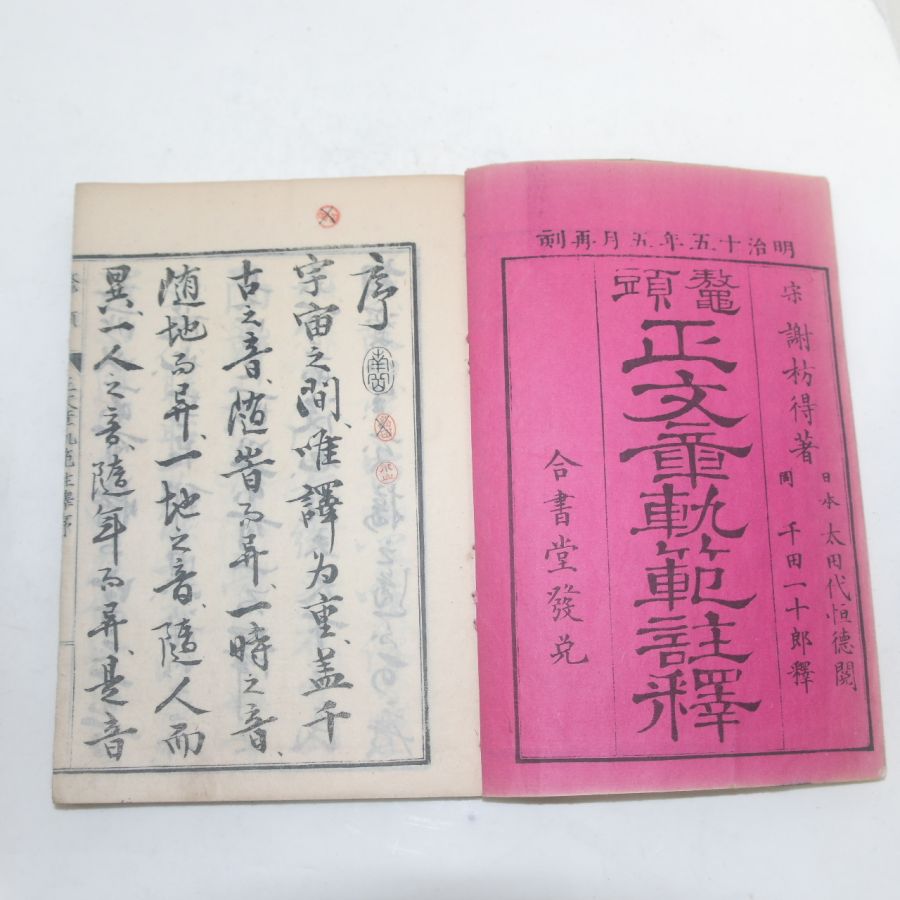 明治十五年五月再刻
宋 謝枋得著
日本 太田代恒德閱
同 千田一十郎釋
鼇頭
正文章軌範註釋
合書堂發兌
序
宇宙之間、唯譯为重、盖千
古之音、随峕而异、一時之音、
随地而异、一地之音、隨人而
異、一人之音、隨年而异、是音